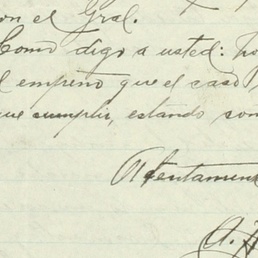 on el Gral.
Como digo a usted:
l empeño que el caso
ue cumplir, estando son
Atentamen
A.